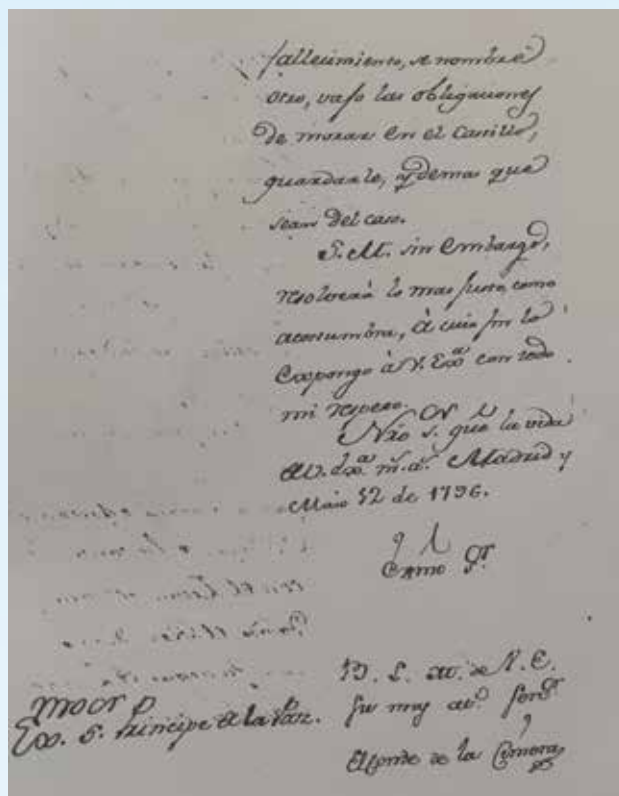 fallecimiento, se nombre
otro, vajo las obligaciones
de morar en el Castillo,
guardarle, y demas que
sean del caso.
S. M. sin embargo,
resolverá lo mas justo, como
acostumbra, à cuio fin lo
Expongo à V. Exª con todo
mi respeto.
Nrô Sʳ guẽ la vida
de V. Exª mˢ aˢ Madrid y
Maio 12 de 1796.
Exmo Sʳ
B. L. M. de V. E.
su muy atᵒ servʳ
El Conde de la Cimera
Exmo Sʳ
Principe de la Paz.